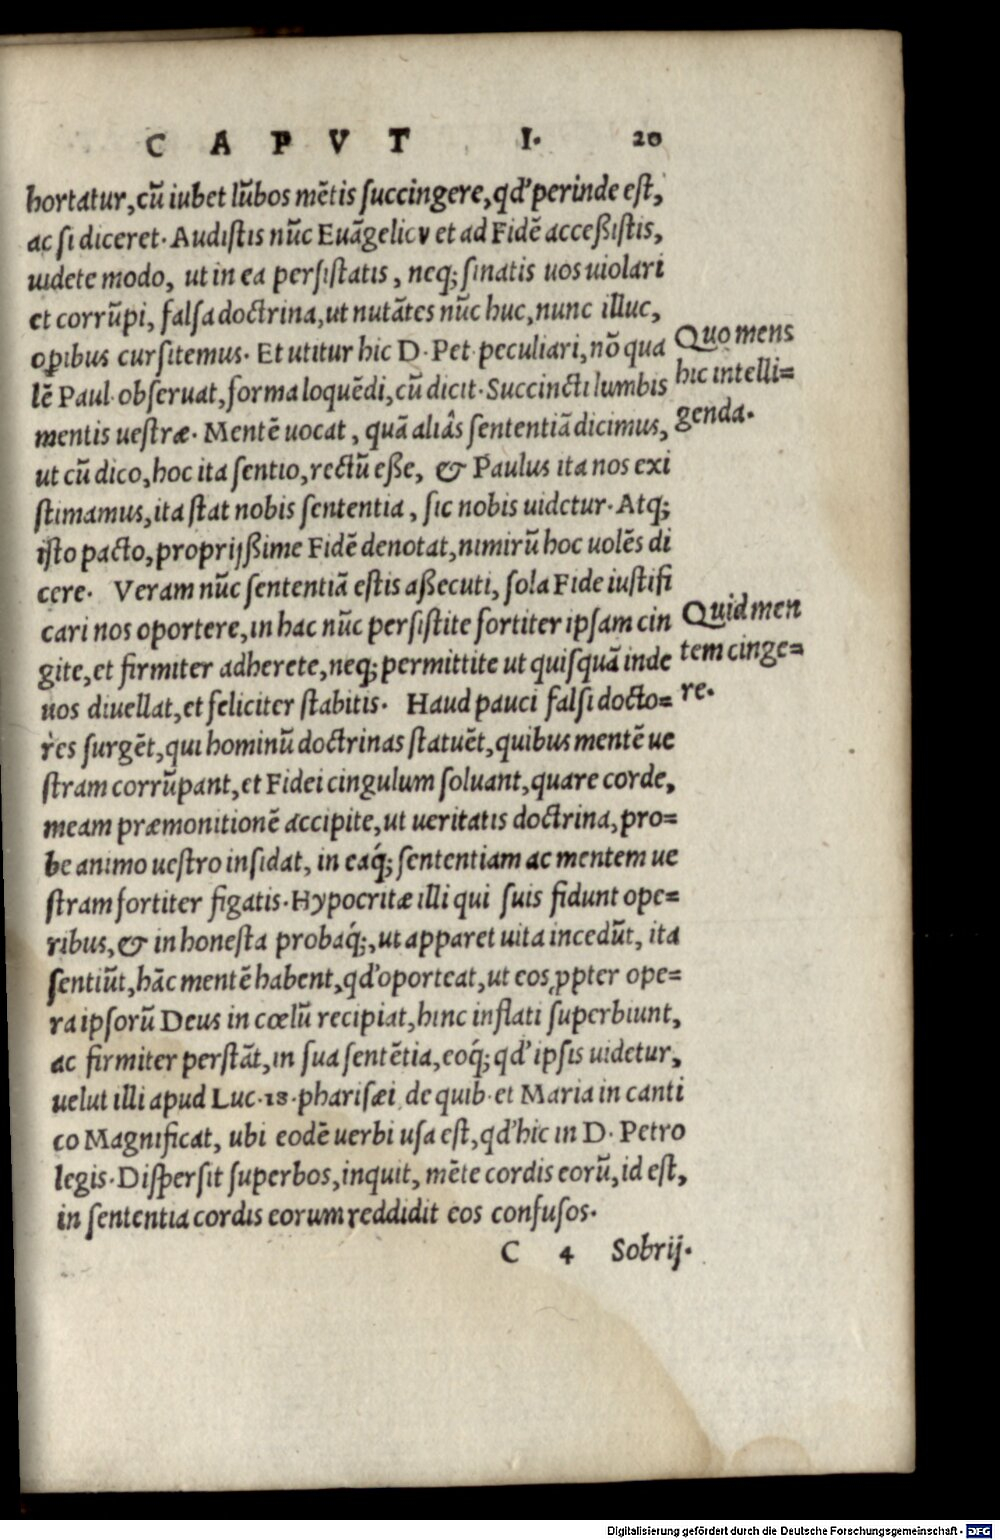 CAPVT I. 20
hortatur, cū iubet lūbos mētis ſuccingere, qd' perinde eſt,
ac ſi diceret. Audiſtis nūc Euāgelicv et ad Fidē acceßiſtis,
uidete modo, ut in ea perſiſtatis, neq; ſinatis uos uiolari
et corrūpi, falſa doctrina, ut nutātes nūc huc, nunc illuc,
oꝑibus curſitemus. Et utitur hic D. Pet. peculiari, nō qua
lē Paul. obſeruat, forma loquēdi, cū dicit. Succincti lumbis
mentis ueſtræ. Mentē uocat, quā aliâs ſententiā dicimus,
ut cū dico, hoc ita ſentio, rectū eße, & Paulus ita nos exi
ſtimamus, ita ſtat nobis ſententia, ſic nobis uidetur. Atq;
iſto pacto, proprijßime Fidē denotat, nimirū hoc uolēs di
cere. Veram nūc ſententiā eſtis aßecuti, ſola Fide iuſtifi
cari nos oportere, in hac nūc perſiſtite fortiter ipſam cin
gite, et firmiter adherete, neq; permittite ut quiſquā inde
uos diuellat, et feliciter ſtabitis. Haud pauci falſi docto=
res ſurgēt, qui hominū doctrinas ſtatuēt, quibus mentē ue
ſtram corrūpant, et Fidei cingulum ſoluant, quare corde,
meam præmonitionē accipite, ut ueritatis doctrina, pro=
be animo ueſtro inſidat, in eaq́; ſententiam ac mentem ue
ſtram fortiter figatis. Hypocritæ illi qui ſuis fidunt ope=
ribus, & in honeſta probaq́;, ut apparet uita incedūt, ita
ſentiūt, hāc mentē habent, qd' oporteat, ut eos ꝓpter ope=
ra ipſorū Deus in cœlū recipiat, hinc inflati ſuperbiunt,
ac firmiter perſtāt, in ſua ſentētia, eoq́; qd' ipſis uidetur,
uelut illi apud Luc. 18. phariſæi, de quib. et Maria in canti
co Magnificat, ubi eodē uerbi uſa eſt, qd' hic in D. Petro
legis. Diſperſit ſuperbos, inquit, mēte cordis eorū, id eſt,
in ſententia cordis eorum reddidit eos confuſos.
C 4 Sobrij.
Quo mens
hic intelli=
genda.
Quid men
tem cinge=
re.
Digitalisierung gefördert durch die Deutsche Forschungsgemeinschaft - DFG